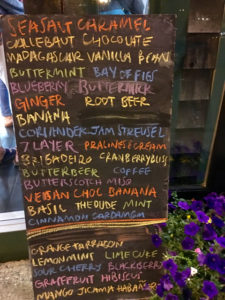 SEASALT CARAMEL
CALLEBAUT CHOCOLATE
MADAGASCAR VANILLA BEAN
BUTTERMINT BAY OF FIGS
BLUEBERRY BUTTERMILK
GINGER ROOT BEER
BANANA
CORIANDER JAM STREUSEL
7 LAYER PRALINES & CREAM
BRIGADEIRO CRANBERRY BLISS
BUTTERBEER COFFEE
BUTTERSCOTCH MISO
VEGAN CHOC BANANA
BASIL THE DUDE MINT
CINNAMON CARDAMOM
ORANGE TARRAGON
LEMON MINT LIME CUKE
SOUR CHERRY BLACKBERRY
GRAPEFRUIT HIBISCUS
MANGO JICAMA HABANERO